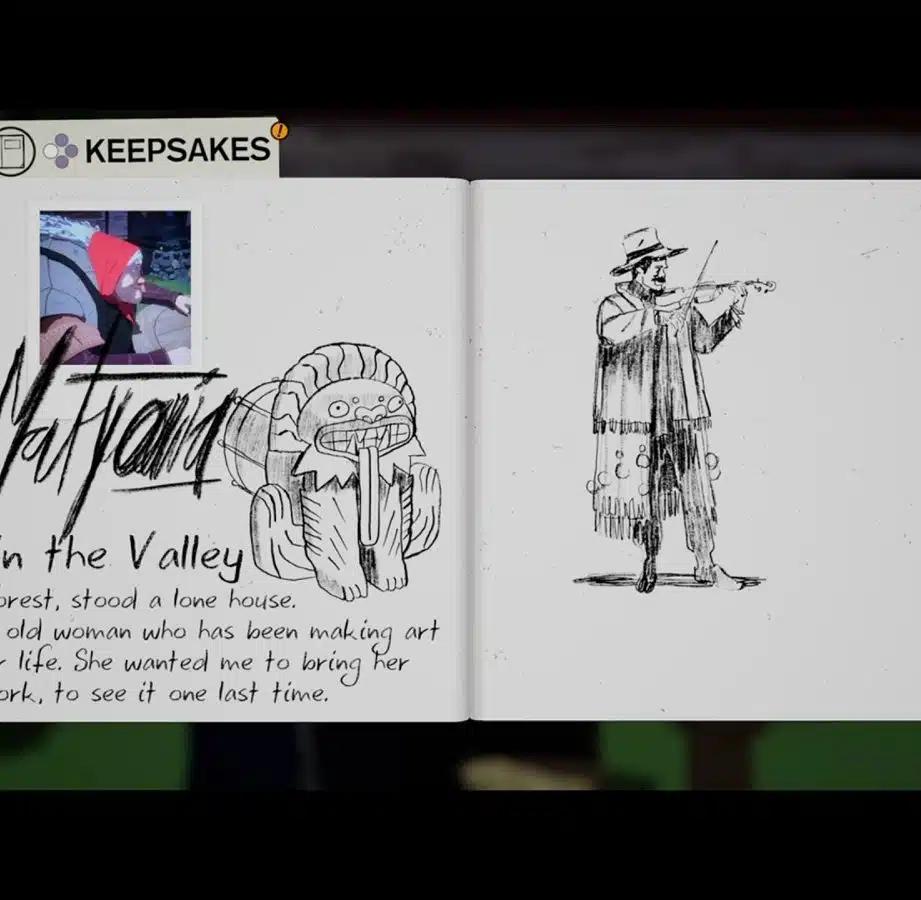 KEEPSAKES
!
n the Valley
orest, stood a lone house.
old woman who has been making art
r life. She wanted me to bring her
ork, to see it one last time.